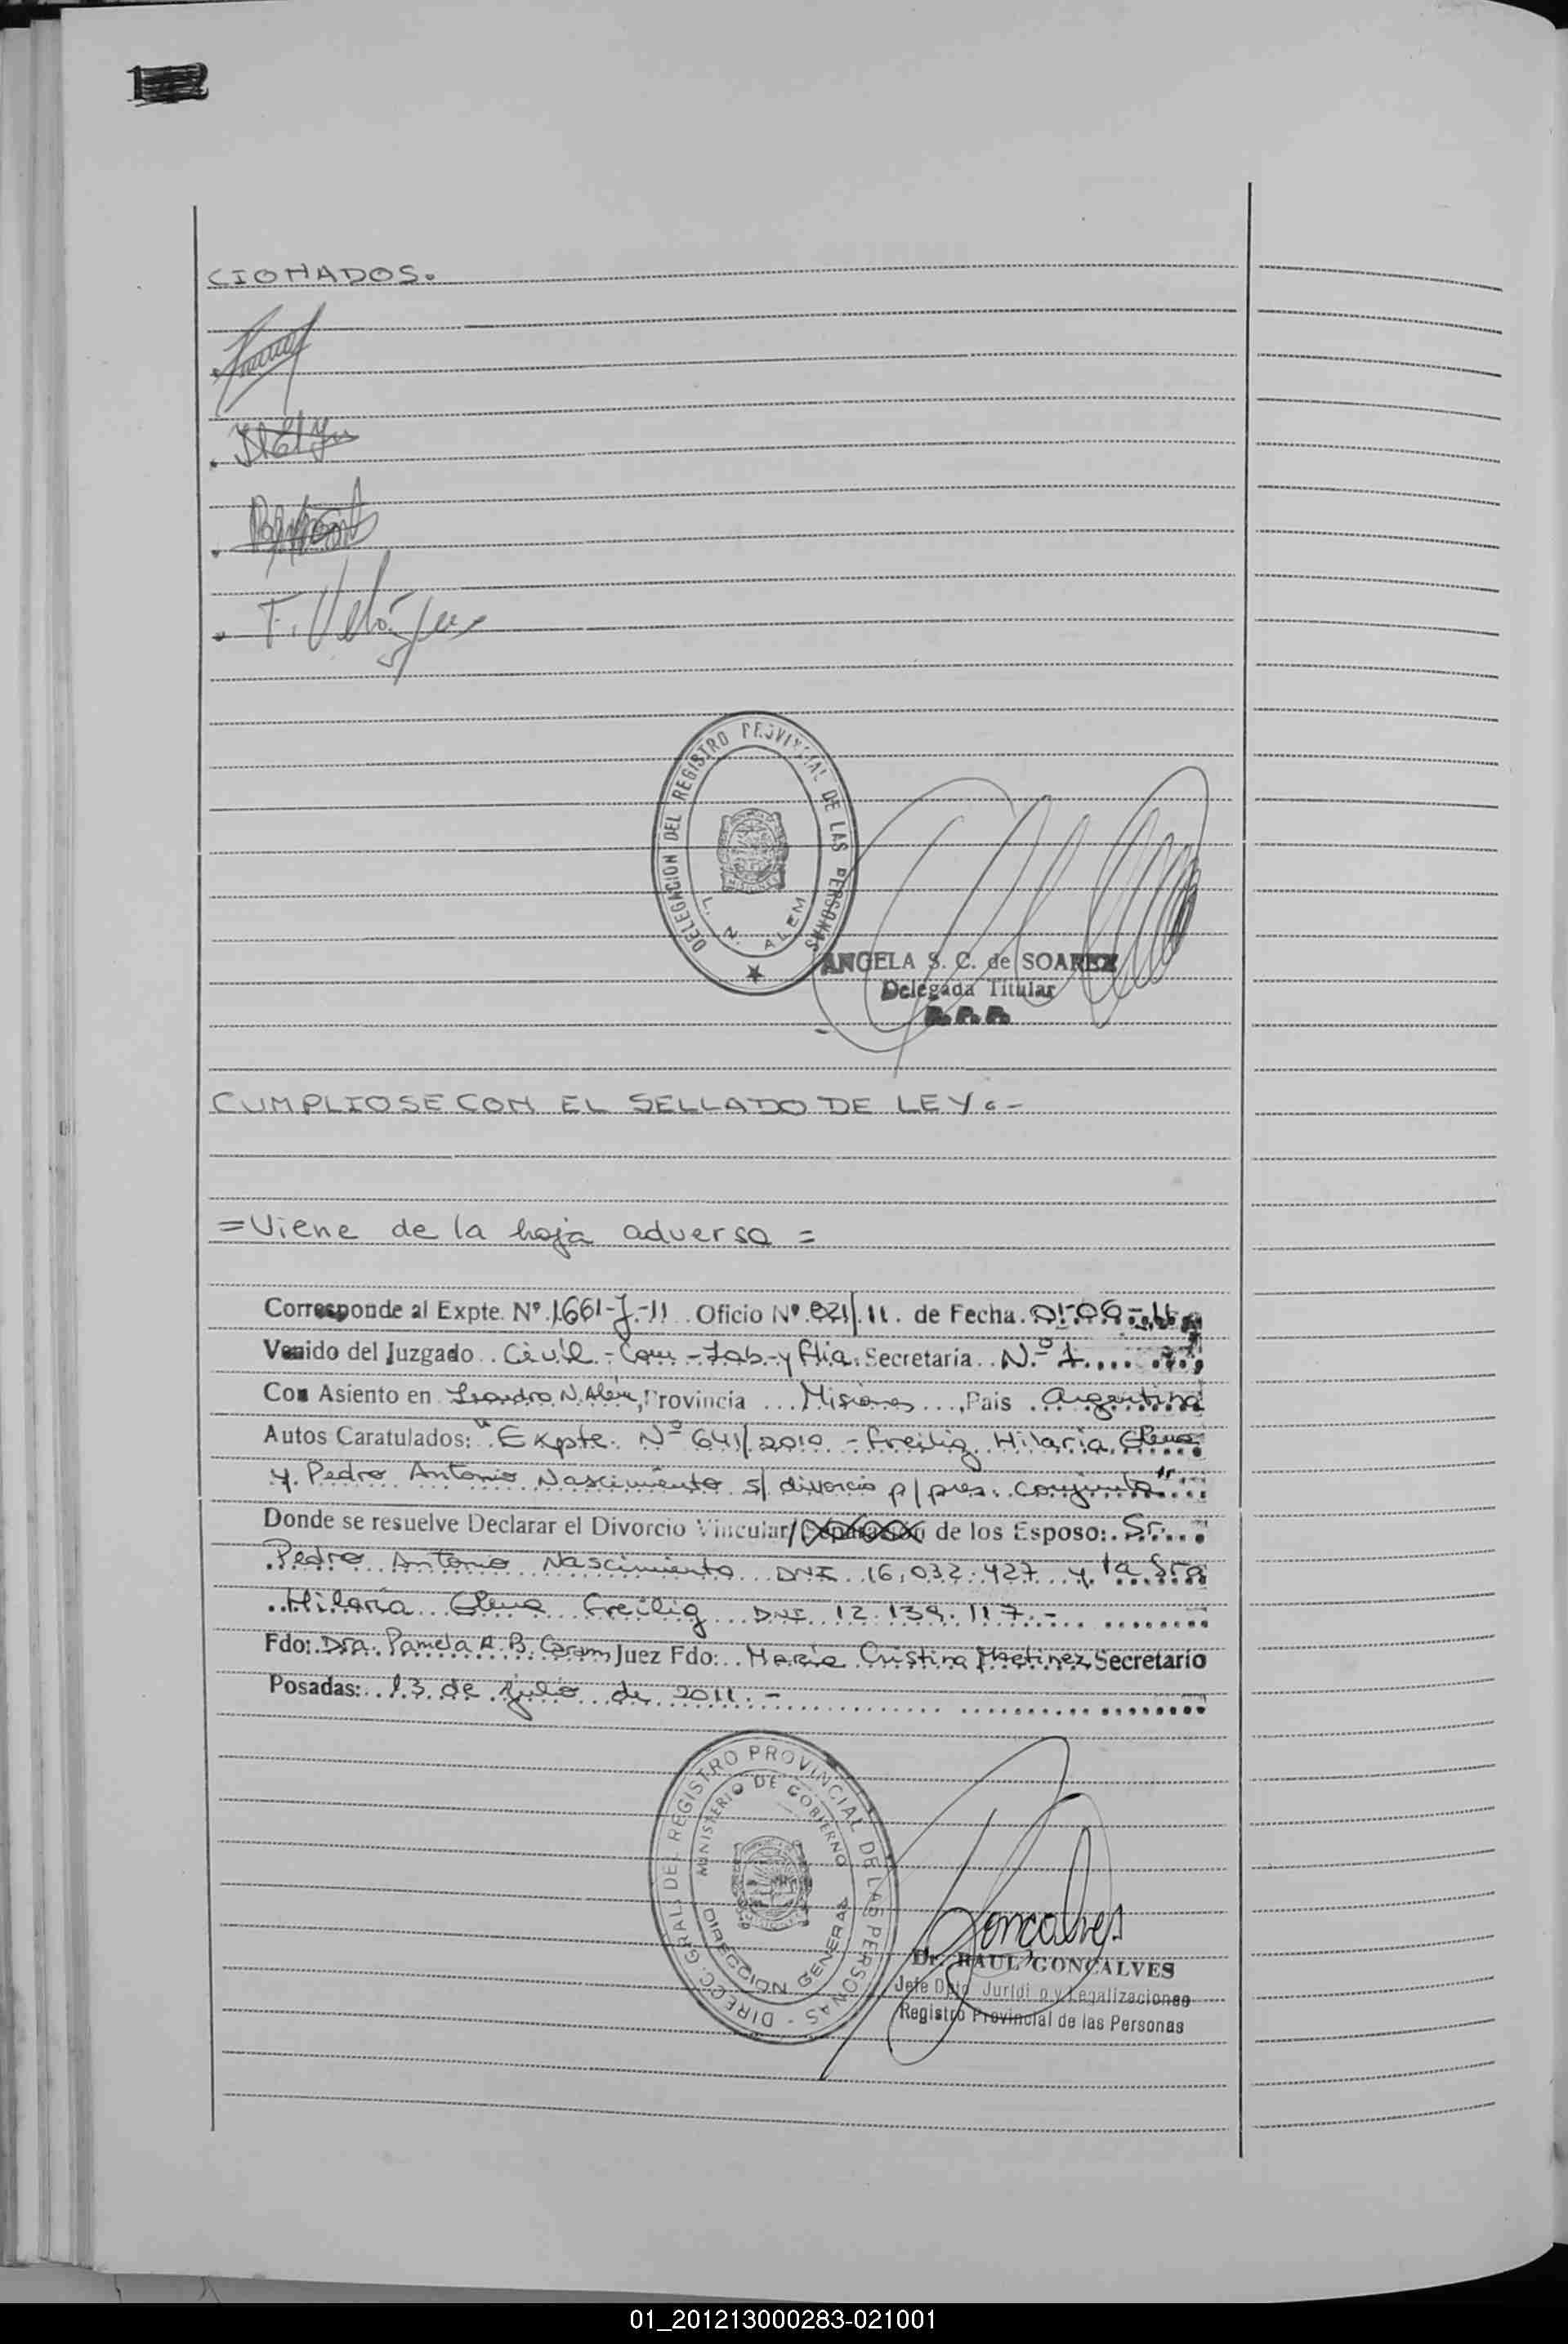 CIONADOS.
F. Velázquez
DELEGACION DEL REGISTRO PROVINCIAL DE LAS PERSONAS
L. N. ALEM
ANGELA S. C. de SOAREZ
Delegada Titular
R. P. P.
CUMPLIOSE CON EL SELLADO DE LEY.-
=Viene de la hoja adversa =
Corresponde al Expte. Nº 1661-J-11 Oficio Nº 821/11. de Fecha. 01-06-11
Venido del Juzgado Civil-Com-Lab-y flia. Secretaría N.º 1
Con Asiento en Leandro N. Alem, Provincia Misiones, Pais Argentina
Autos Caratulados: "Expte. Nº 641/2010 - Freilig Hilaria Elena
y Pedro Antonio Nascimiento s/ divorcio p/ pres. conjunta"
Donde se resuelve Declarar el Divorcio Vincular/Separación de los Esposo: Sr.
Pedro Antonio Nascimiento DNI 16.032.427 y la Sra
Hilaria Elena Freilig DNI 12.139.117.-
Fdo: Dra. Pamela A. B. Juez Fdo: María Cristina Martinez Secretario
Posadas: 13 de julio de 2011.-
DIRECC. GRAL. DEL REGISTRO PROVINCIAL DE LAS PERSONAS -
MINISTERIO DE GOBIERNO
DIRECCION GENERAL
Goncalves
Dr. RAUL GONCALVES
Jefe Dpto Juridico y Legalizaciones
Registro Provincial de las Personas
01_201213000283-021001